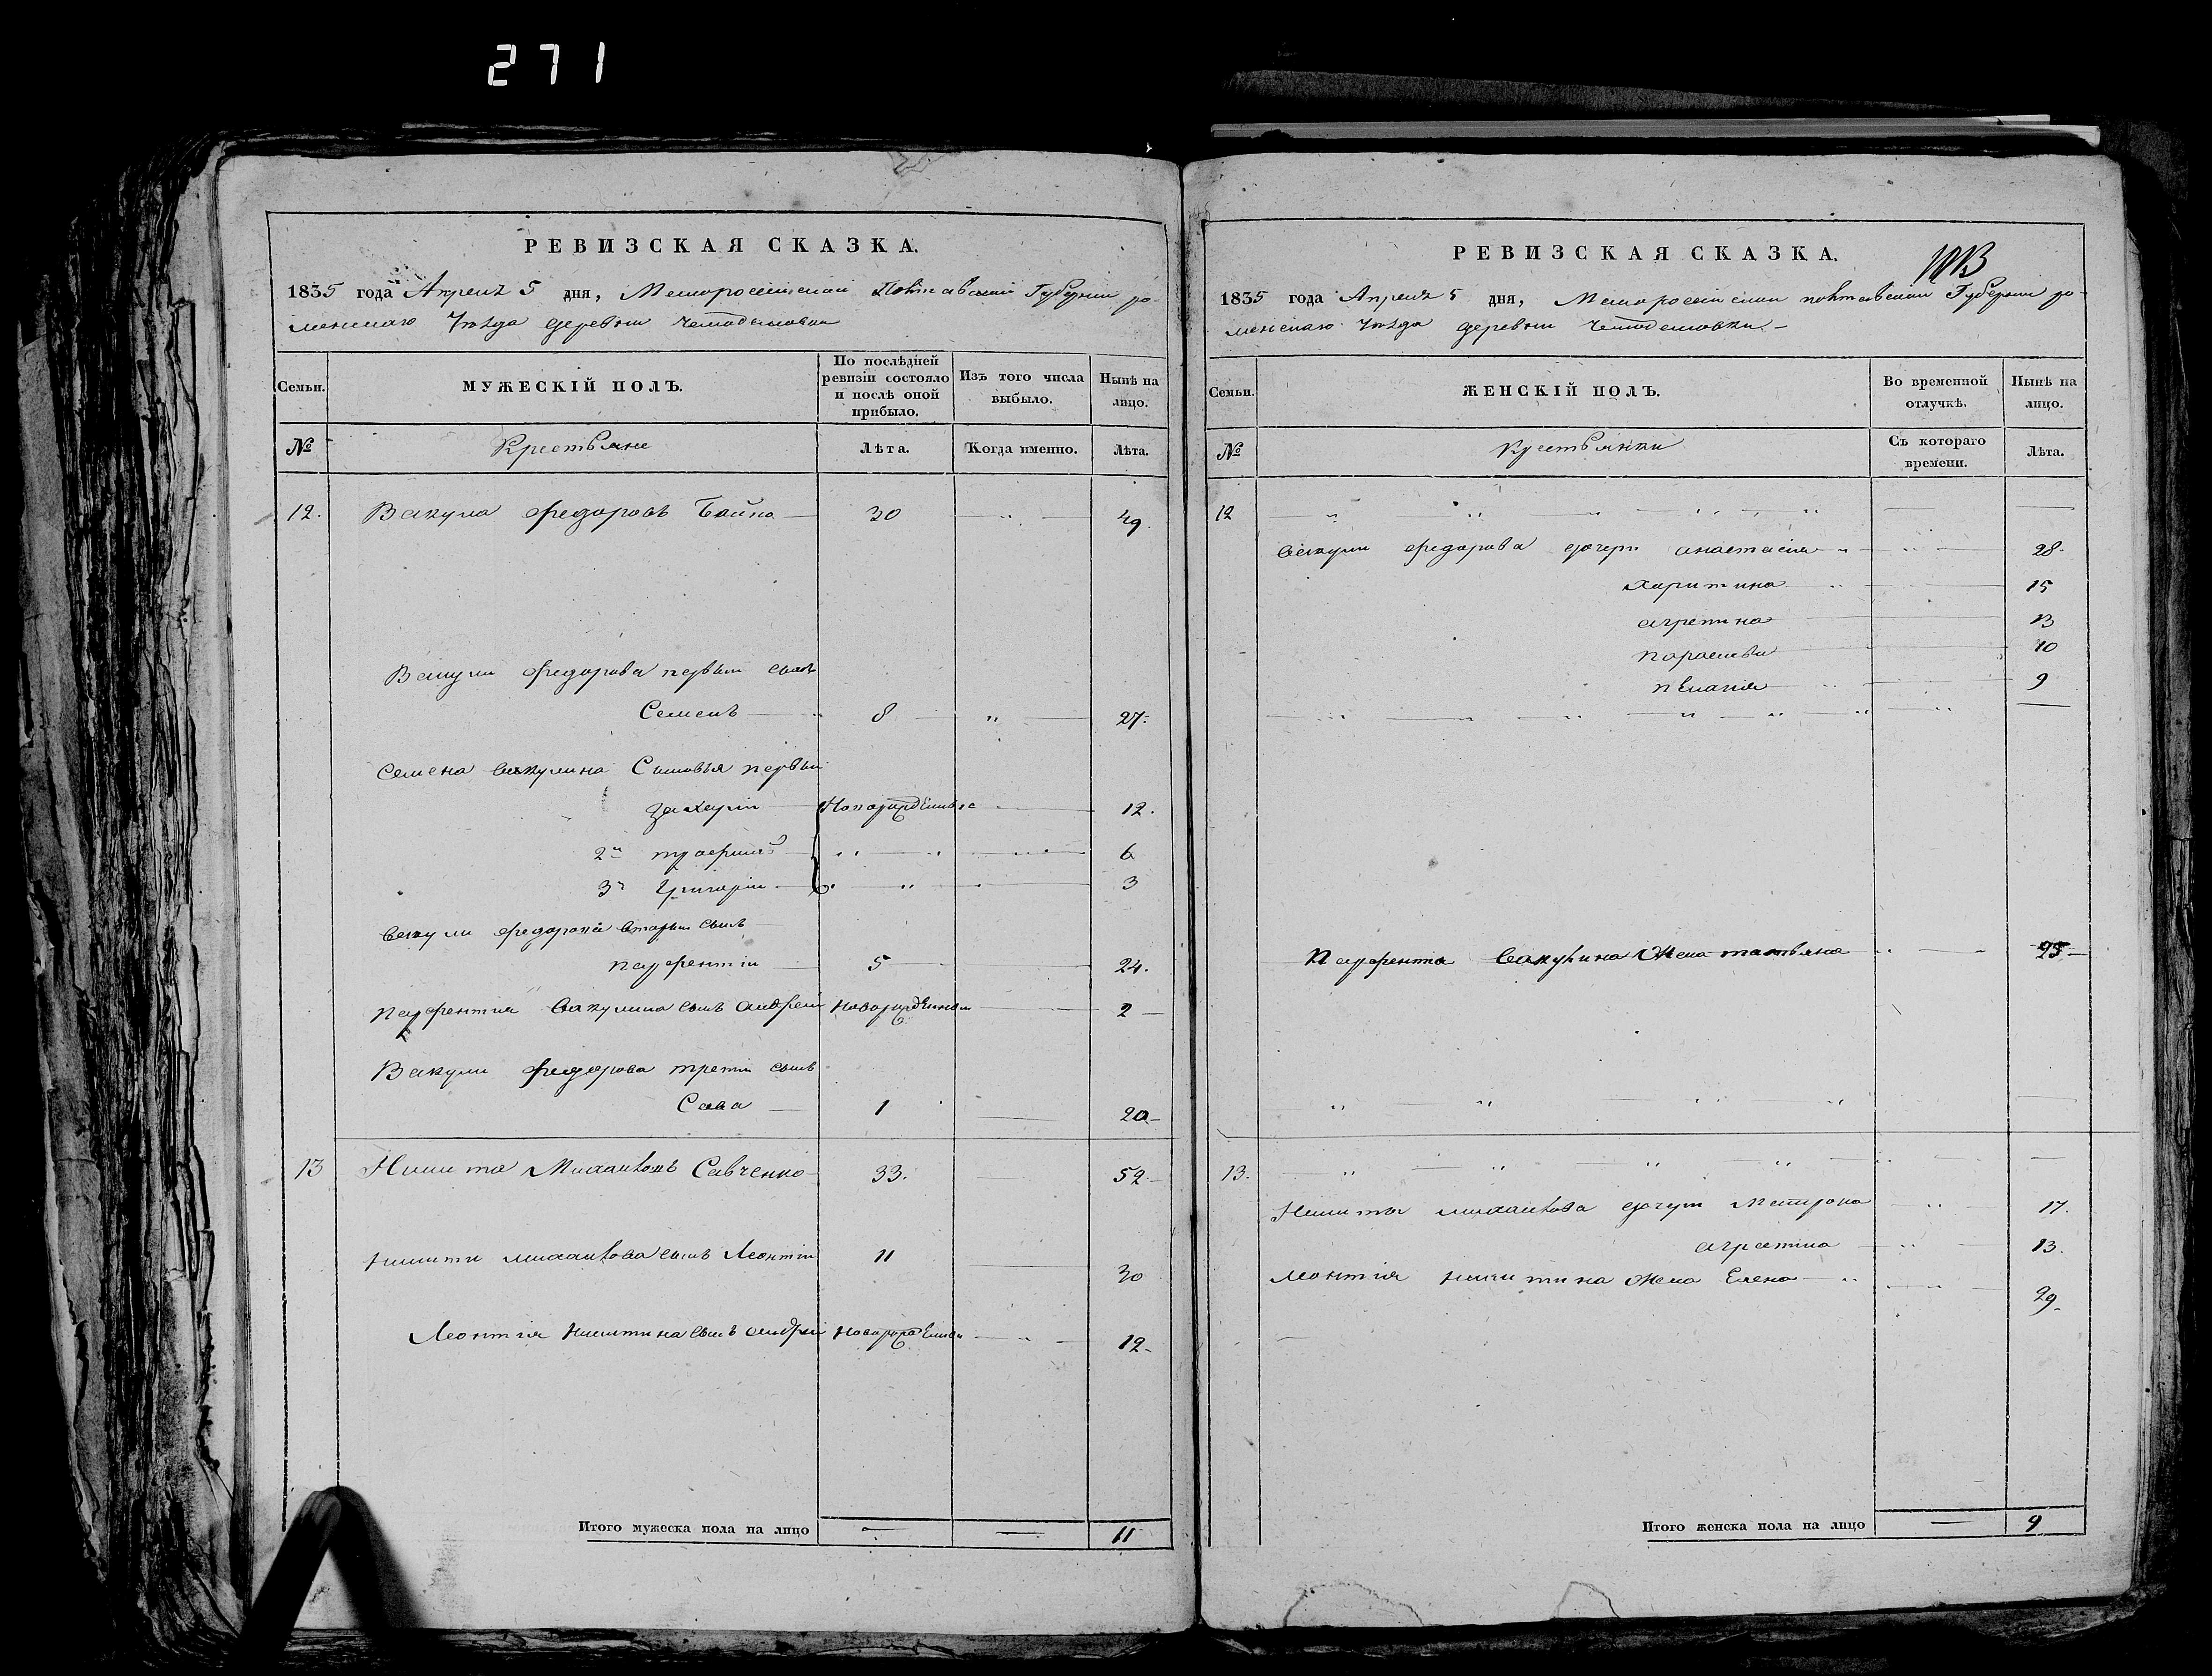 271
РЕВИЗСКАЯ СКАЗКА.
1835 года Апреля 5 дня, Малоросийской Полтавской Губернии ро-
менскаго Уезда деревни
Семьи.
МУЖЕСКІЙ ПОЛЪ.
По послѣдней ревизіи состояло и послѣ оной прибыло.
Изъ того числа выбыло.
Нынѣ на лицо.
№
Крестьяне
Лѣта.
Когда именно.
Лѣта.
12. Вакула Федоровъ Бойко 30 49.
Вакули Федорова первый сынъ
Семенъ 8 " 27.
Семена Вакулина Сыновья первый
Захарій Новорожденные 12.
2й 6
3й Григорій 3
Вакули Федорова вторый сынъ
Парфентий 5 24.
Парфентия Вакулина сынъ Андрей Новорожденный 2
Вакули Федорова третий сынъ
Сава 1 20
13 Никита Михайловъ Савченко 33. 52
Никити Михайлова сынъ Леонтий 11 30
Леонтия Никитина сынъ Андрей Новорожденный 12
Итого мужеска пола на лицо 11
РЕВИЗСКАЯ СКАЗКА.
1835 года Апреля 5 дня, Малоросийской Полтавской Губернии ро-
менскаго Уезда деревни
Семьи.
ЖЕНСКІЙ ПОЛЪ.
Во временной отлучкѣ.
Нынѣ на лицо.
№
Крестьянки
Съ котораго времени.
Лѣта.
12
Вакули Федорова дочери Анастасия 28.
Харитина 15
Агрепина 13
Параскева 10
Пелагия 9
Парфентия Вакулина Жена Татьяна 25
13.
Никиты Михайлова дочери Матрона 17.
Агрепина 13.
Леонтия Никитина Жена Елена 29
Итого женска пола на лицо 9